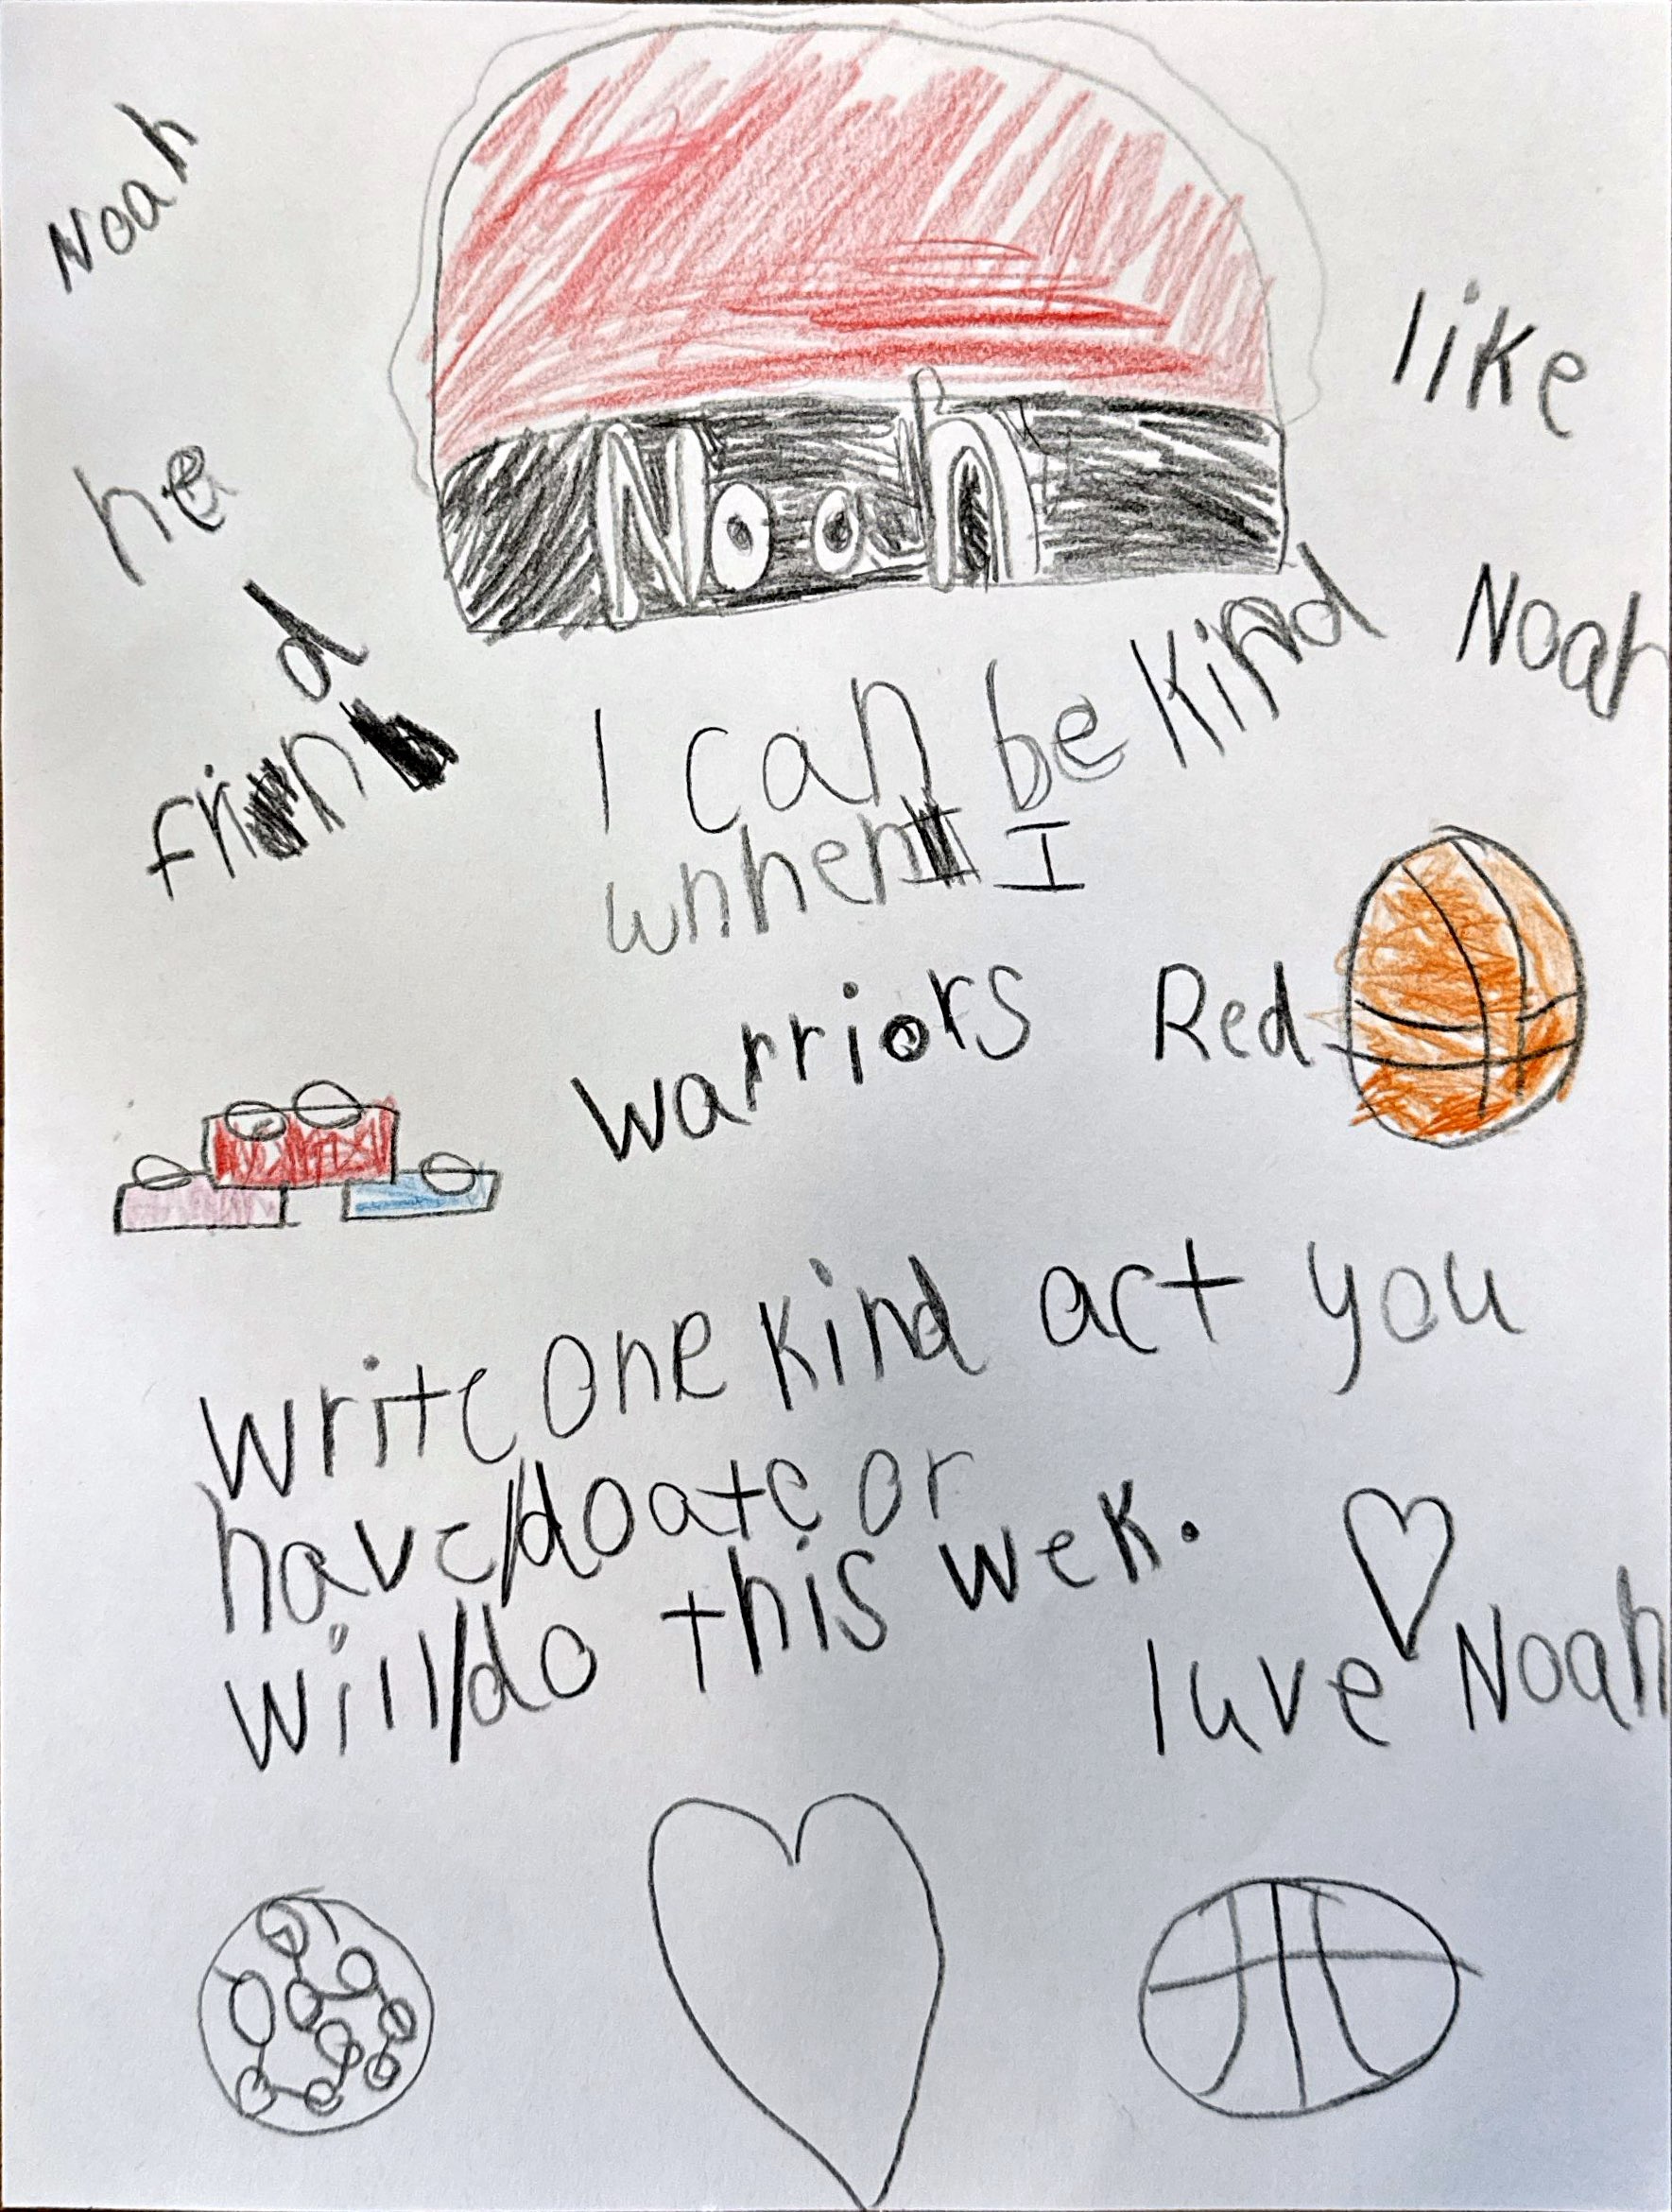 Noah
like
he
Noah
Noah
frind
I can be kind
wnhen I
warriors Red
write one kind act you
have/doate or
will/do this wek.
luve Noah